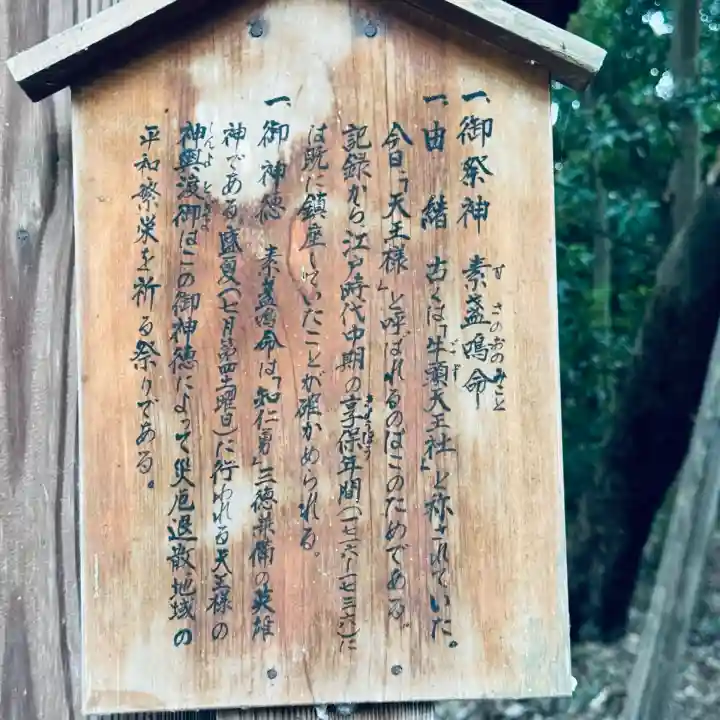 一、御祭神 素盞鳴命
すさのおのみこと
一、由緒 古くは「牛頭天王社」と称されていた。
ごず
今日、「天王様」と呼ばれるのはこのためである。
記録から江戸時代中期の享保年間(一七一六〜一七三六)に
きょうほう
は既に鎮座していたことが確かめられる。
一、御神徳 素盞鳴命は、「知仁勇」三徳兼備の英雄
神である。盛夏(七月第四土曜日)に行われる天王様の
神輿渡御はこの御神徳によって災厄退散地域の
しんよとぎょ
平和繁栄を祈る祭りである。